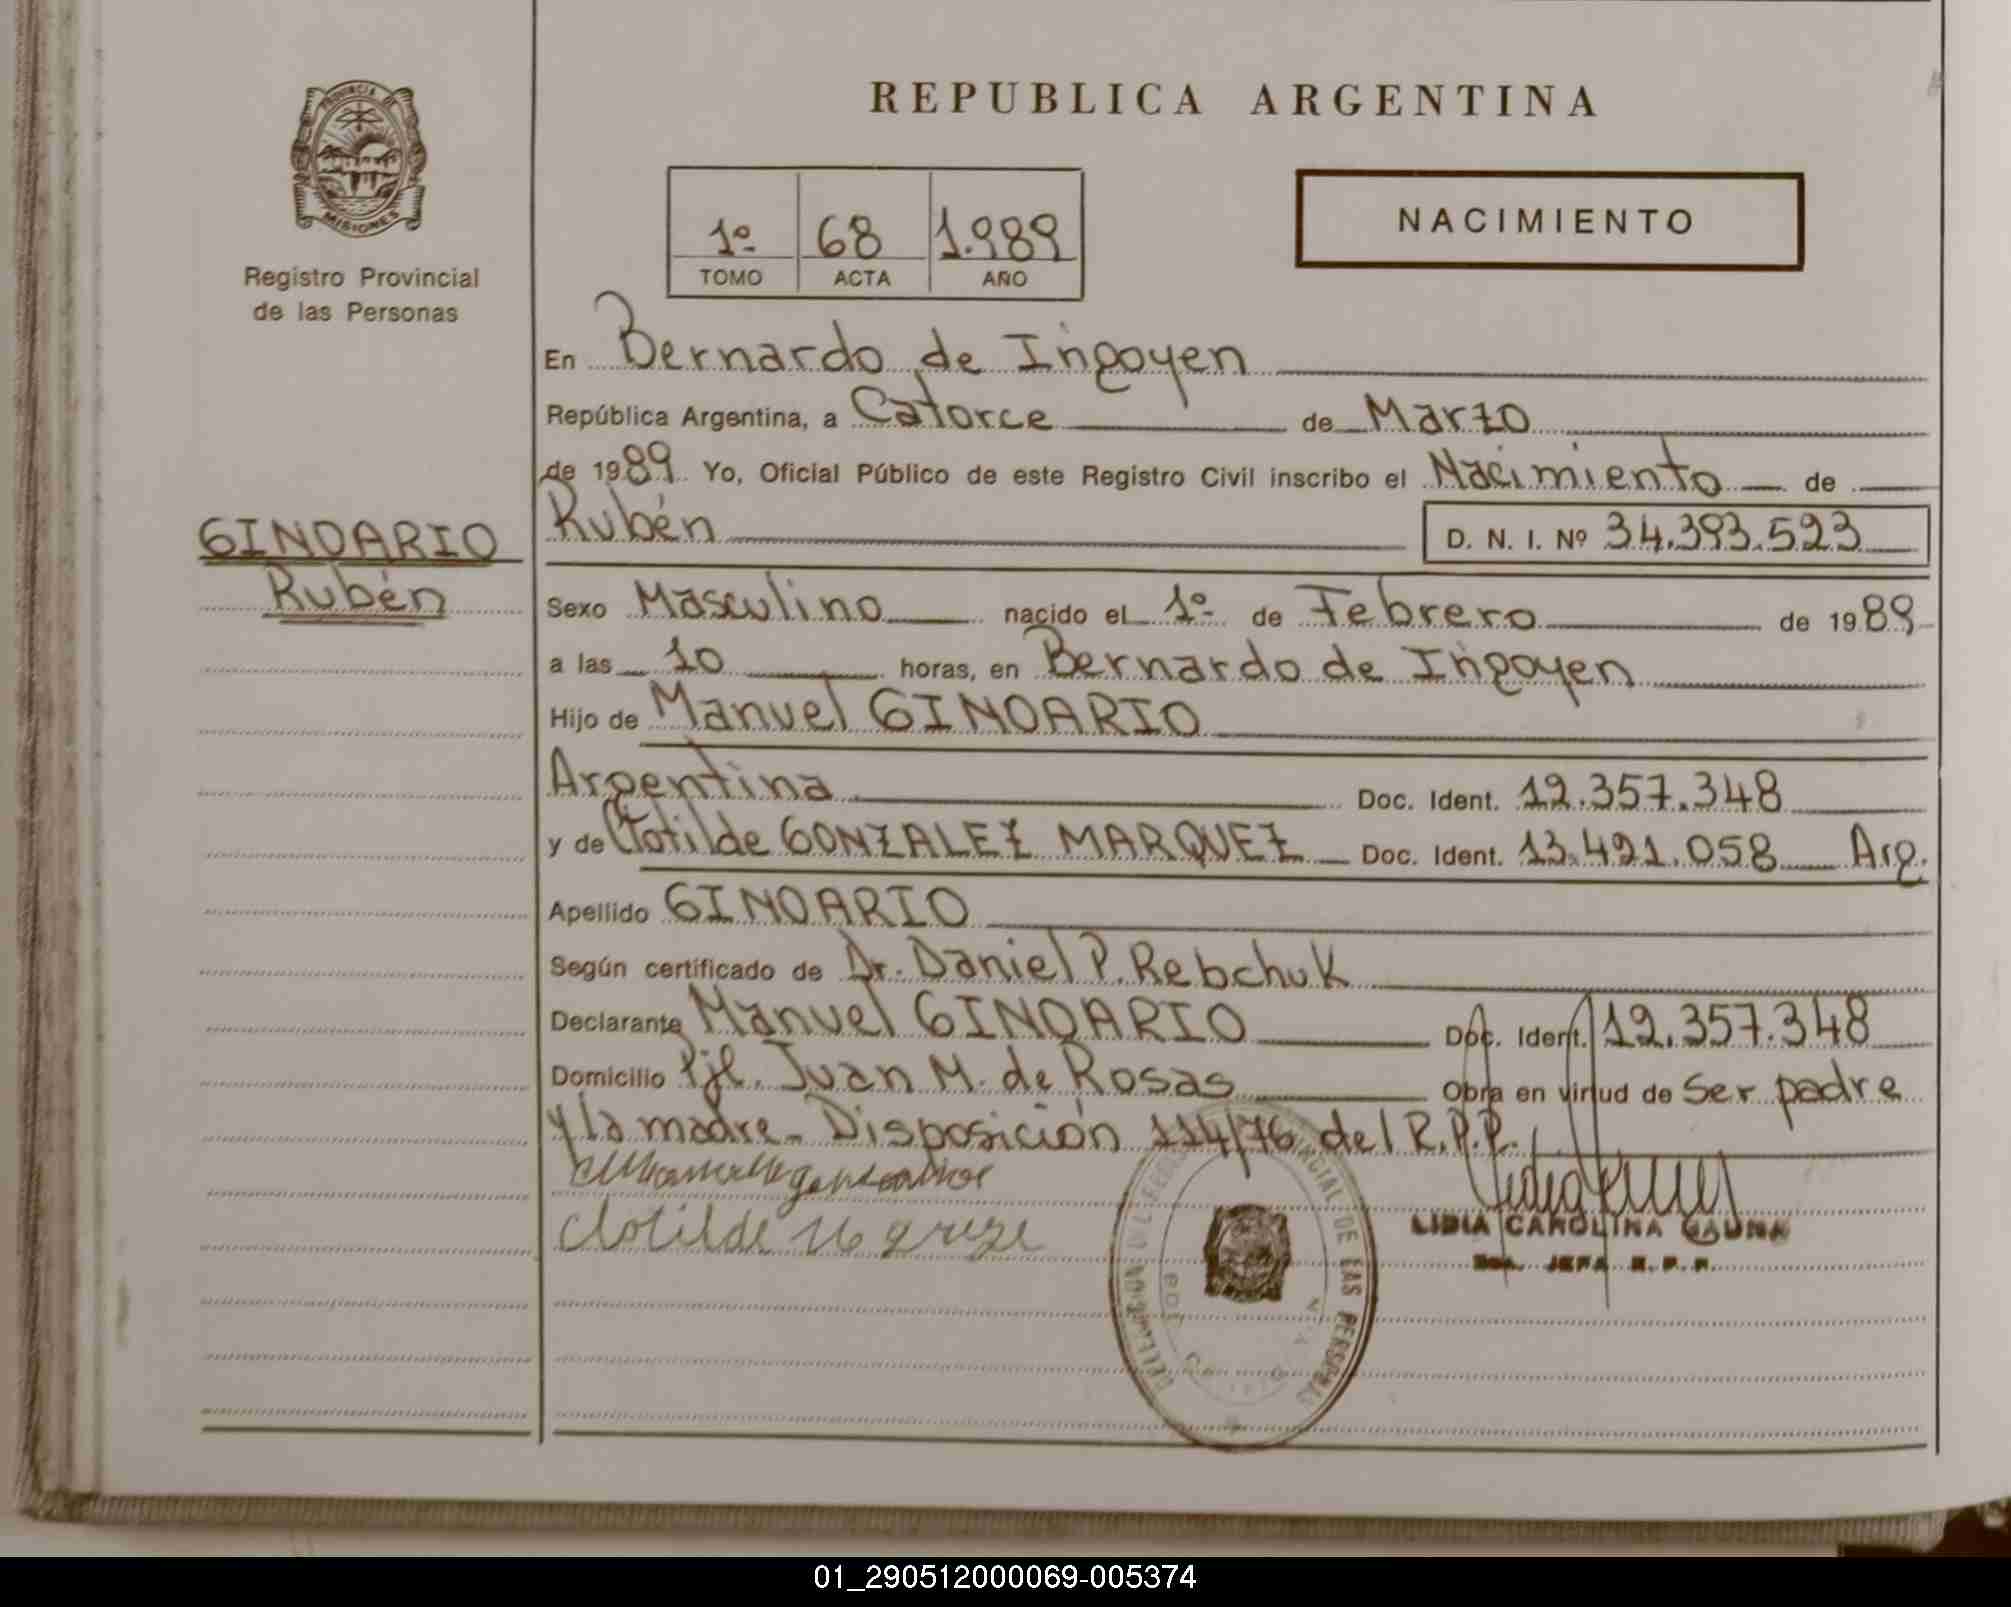 REPUBLICA ARGENTINA
PROVINCIA DE
MISIONES
Registro Provincial
de las Personas
1º 68 1.989
TOMO ACTA AÑO
NACIMIENTO
En Bernardo de Irigoyen
República Argentina, a Catorce de Marzo
de 1989 Yo, Oficial Público de este Registro Civil inscribo el Nacimiento de
GINDARIO
Rubén
Rubén D. N. I. Nº 34.393.523
Sexo Masculino nacido el 1º de Febrero de 1989
a las 10 horas, en Bernardo de Irigoyen
Hijo de Manuel GINDARIO
Argentina Doc. Ident. 12.357.348
y de Clotilde GONZALEZ MARQUEZ Doc. Ident. 13.421.058 Arg.
Apellido GINDARIO
Según certificado de Dr. Daniel P. Rebchuk
Declarante Manuel GINDARIO Doc. Ident. 12.357.348
Domicilio Pje. Juan M. de Rosas Obra en virtud de ser padre
y la madre - Disposición 114/76 del R.P.P.
Clotilde
LIDIA CAROLINA GAUNA
JEFA R.P.P.
PROVINCIAL DE LAS PERSONAS
01_290512000069-005374